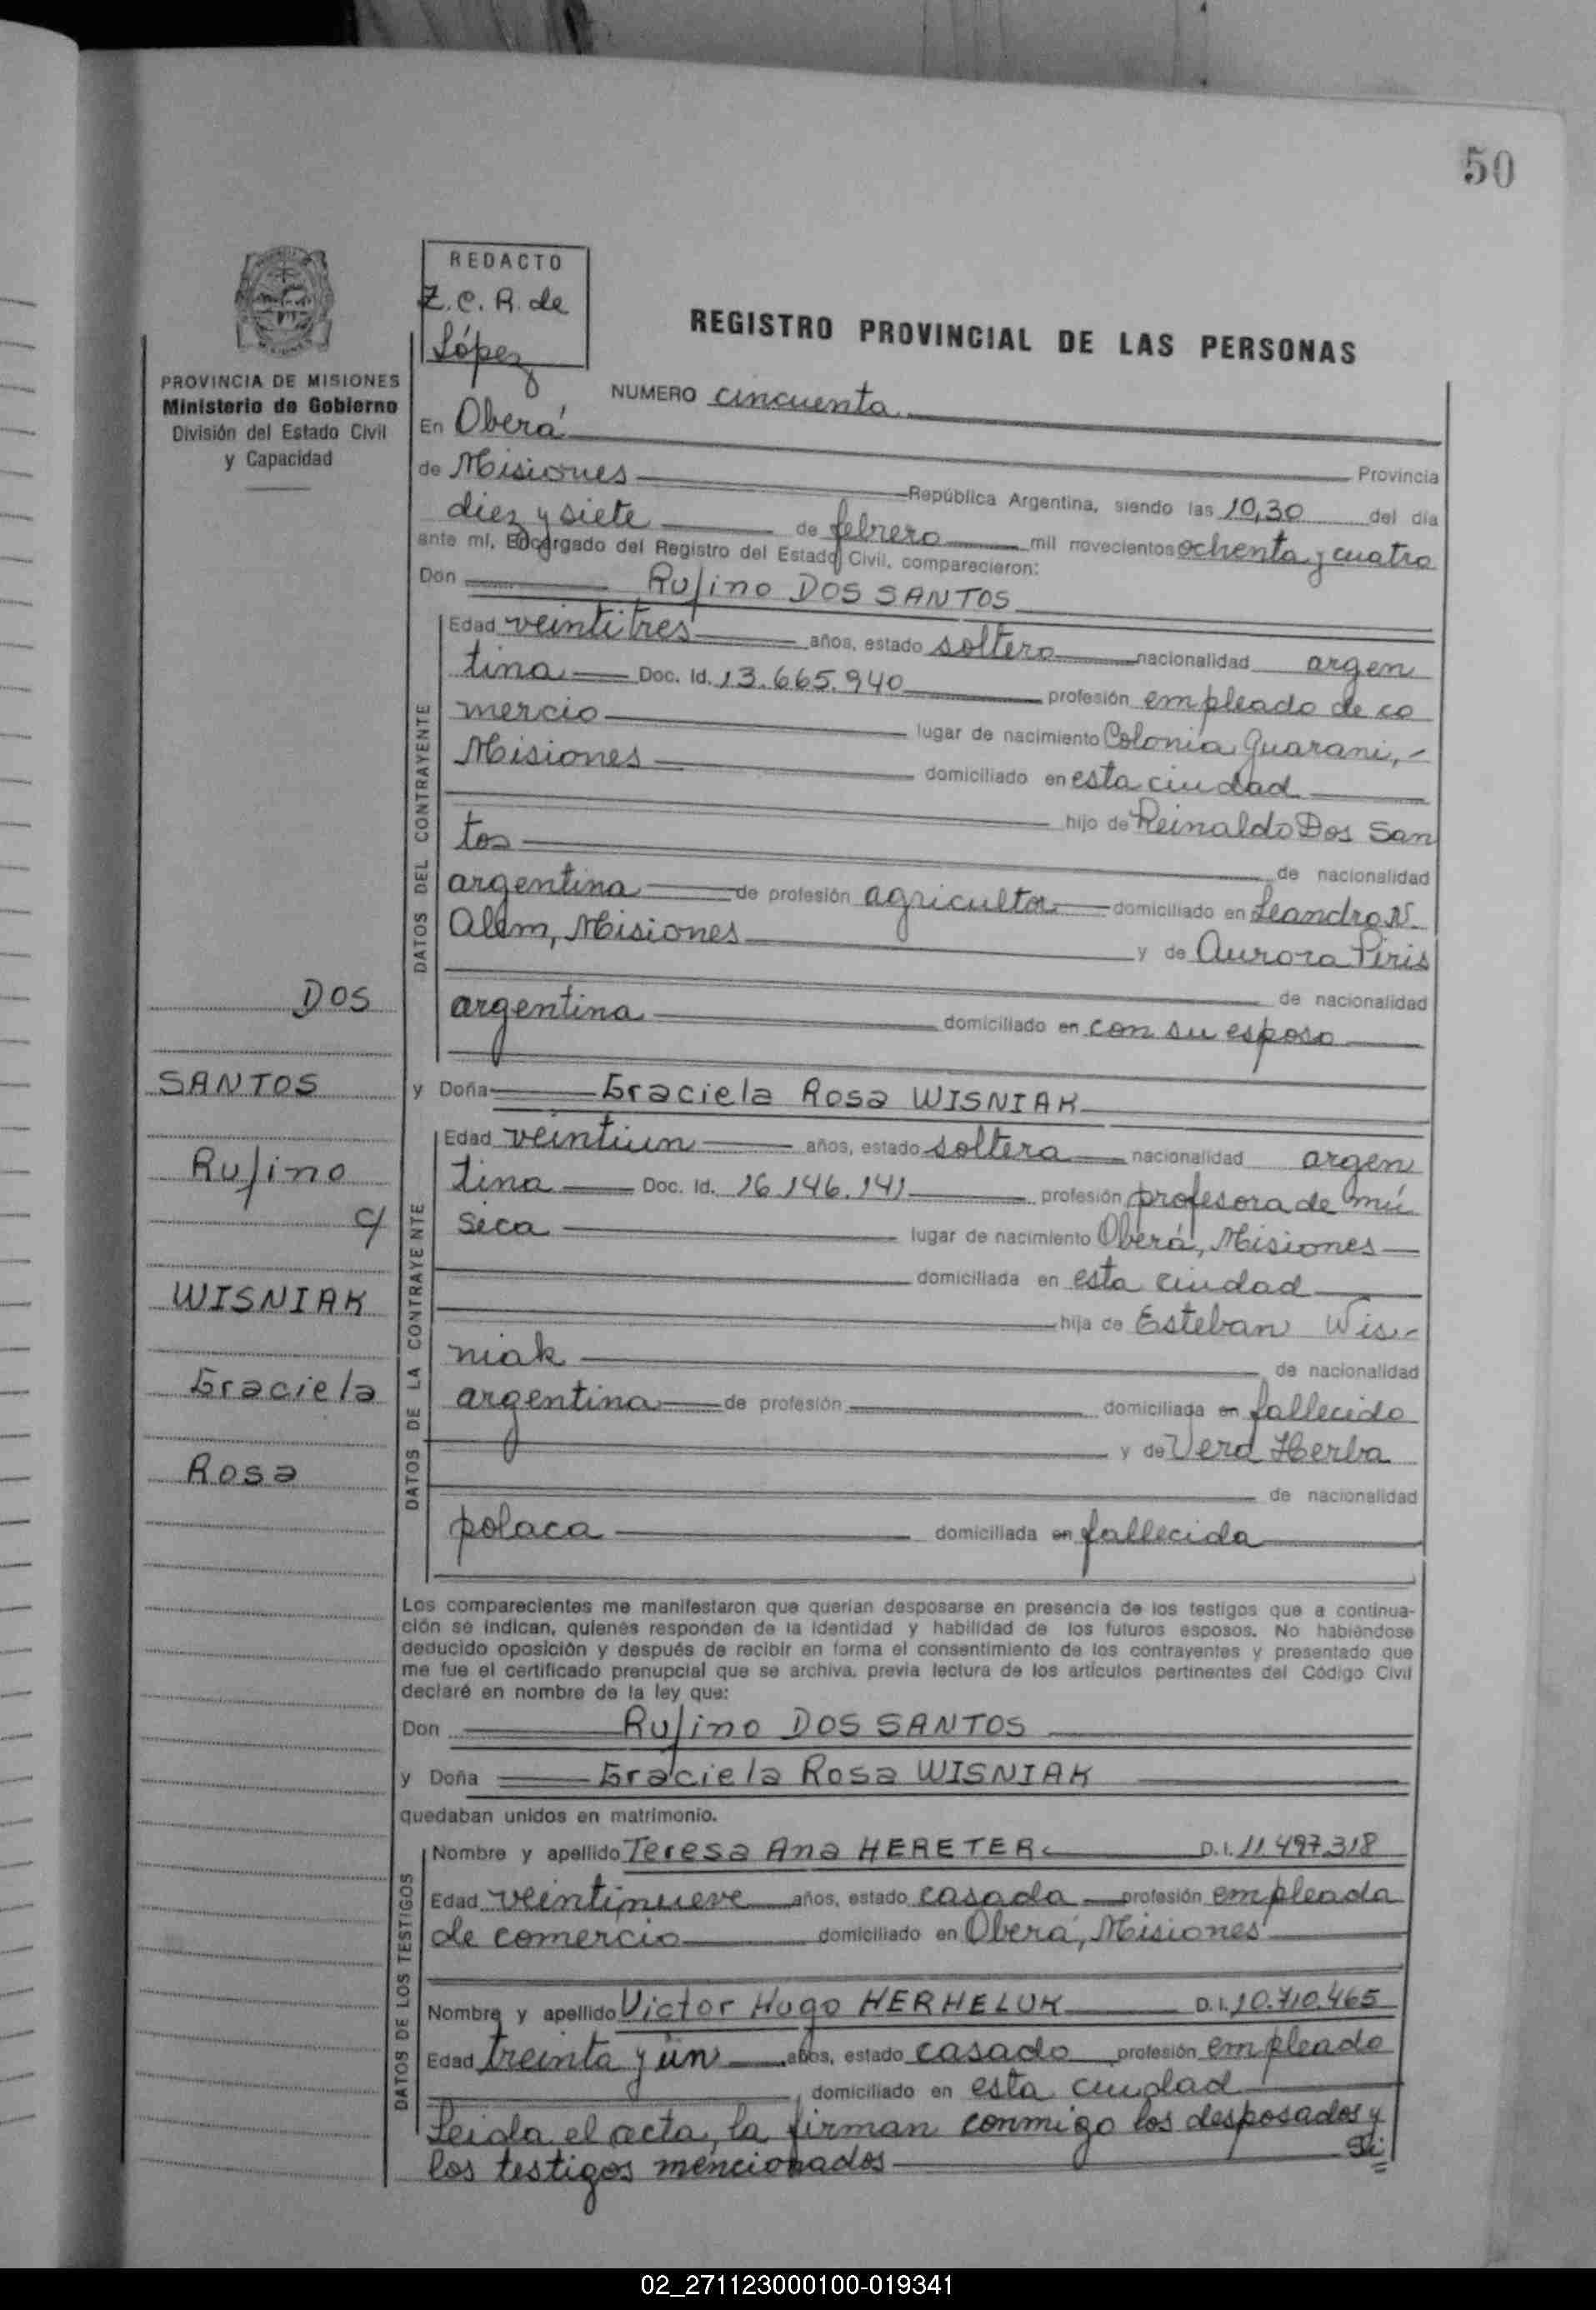 50
REDACTO
Z.C.R. de
López
REGISTRO PROVINCIAL DE LAS PERSONAS
PROVINCIA DE MISIONES
Ministerio de Gobierno
División del Estado Civil
y Capacidad
NUMERO cincuenta
En Oberá
Provincia
de Misiones República Argentina, siendo las 10,30 del día
diez y siete de febrero mil novecientos ochenta y cuatro
ante mí, Encargado del Registro del Estado Civil, comparecieron:
Don Rufino DOS SANTOS
DATOS DEL CONTRAYENTE
Edad veintitres años, estado soltero nacionalidad argen
tina Doc. Id. 13.665.940 profesión empleado de co
mercio lugar de nacimiento Colonia Guarani, -
Misiones domiciliado en esta ciudad
hijo de Reinaldo Dos San
tos de nacionalidad
argentina de profesión agricultor domiciliado en Leandro N.
Alem, Misiones y de Aurora Piris
de nacionalidad
argentina domiciliado en con su esposo
y Doña Graciela Rosa WISNIAK
DATOS DE LA CONTRAYENTE
Edad veintiun años, estado soltera nacionalidad argen
tina Doc. Id. 16.146.141 profesión profesora de mú
sica lugar de nacimiento Oberá, Misiones
domiciliada en esta ciudad
hija de Esteban Wis-
niak de nacionalidad
argentina de profesión domiciliada en fallecido
y de Vera Herba
de nacionalidad
polaca domiciliada en fallecida
DOS
SANTOS
Rufino
c/
WISNIAK
Graciela
Rosa
Los comparecientes me manifestaron que querían desposarse en presencia de los testigos que a continua-
ción se indican, quienes responden de la identidad y habilidad de los futuros esposos. No habiéndose
deducido oposición y después de recibir en forma el consentimiento de los contrayentes y presentado que
me fue el certificado prenupcial que se archiva, previa lectura de los artículos pertinentes del Código Civil
declaré en nombre de la ley que:
Don Rufino DOS SANTOS
y Doña Graciela Rosa WISNIAK
quedaban unidos en matrimonio.
DATOS DE LOS TESTIGOS
Nombre y apellido Teresa Ana HERETER D.I. 11.497.318
Edad veintinueve años, estado casada profesión empleada
de comercio domiciliado en Oberá, Misiones
Nombre y apellido Victor Hugo HERHELUK D.I. 10.710.465
Edad treinta y un años, estado casado profesión empleado
domiciliado en esta ciudad
Leida el acta, la firman conmigo los desposados y
los testigos mencionados
02_271123000100-019341